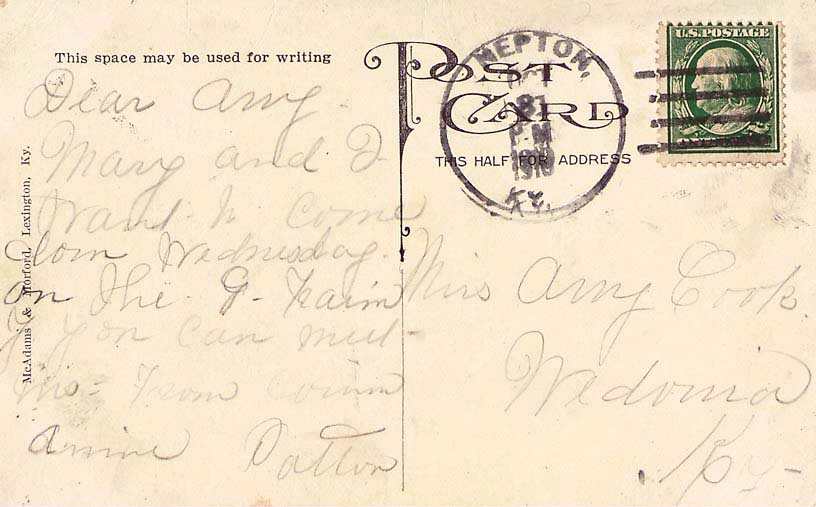 This space may be used for writing
POST CARD
THIS HALF FOR ADDRESS
NEPTON,
P-M
1910
KY.
U.S. POSTAGE
McAdams & Morford, Lexington, Ky.
Dear Amy
Mary and I
want to come
dow Wednesday
on the 9 train
if you can meet
us from
Annie Patton
Miss Amy Cook
Wedonia
Ky-